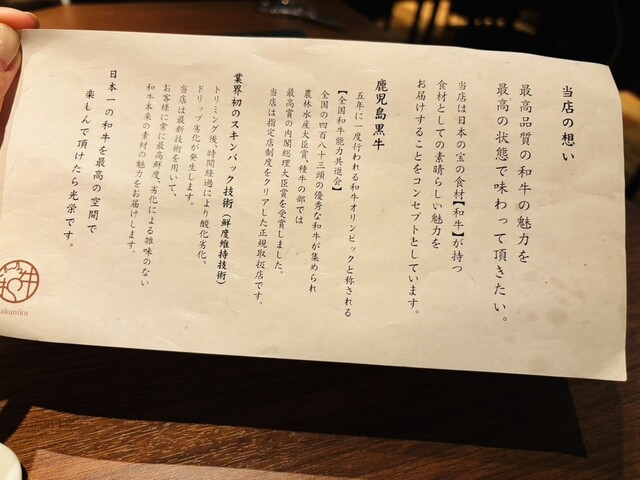 当店の想い
最高品質の和牛の魅力を
最高の状態で味わって頂きたい。
当店は日本の宝の食材【和牛】が持つ
食材としての素晴らしい魅力を
お届けすることをコンセプトとしています。
鹿児島黒牛
五年に一度行われる和牛オリンピックと称される
【全国和牛能力共進会】
全国の四百八十三頭の優秀な和牛が集められ
農林水産大臣賞、種牛の部では
最高賞の内閣総理大臣賞を受賞しました。
当店は指定店制度をクリアした正規取扱店です。
業界初のスキンパック技術（鮮度維持技術）
トリミング後、時間経過により酸化劣化、
ドリップ劣化が発生します。
当店は最新技術を用いて、
お客様に常に最高鮮度、劣化による雑味のない
和牛本来の素材の魅力をお届けします。
日本一の和牛を最高の空間で
楽しんで頂けたら光栄です。
akuniku